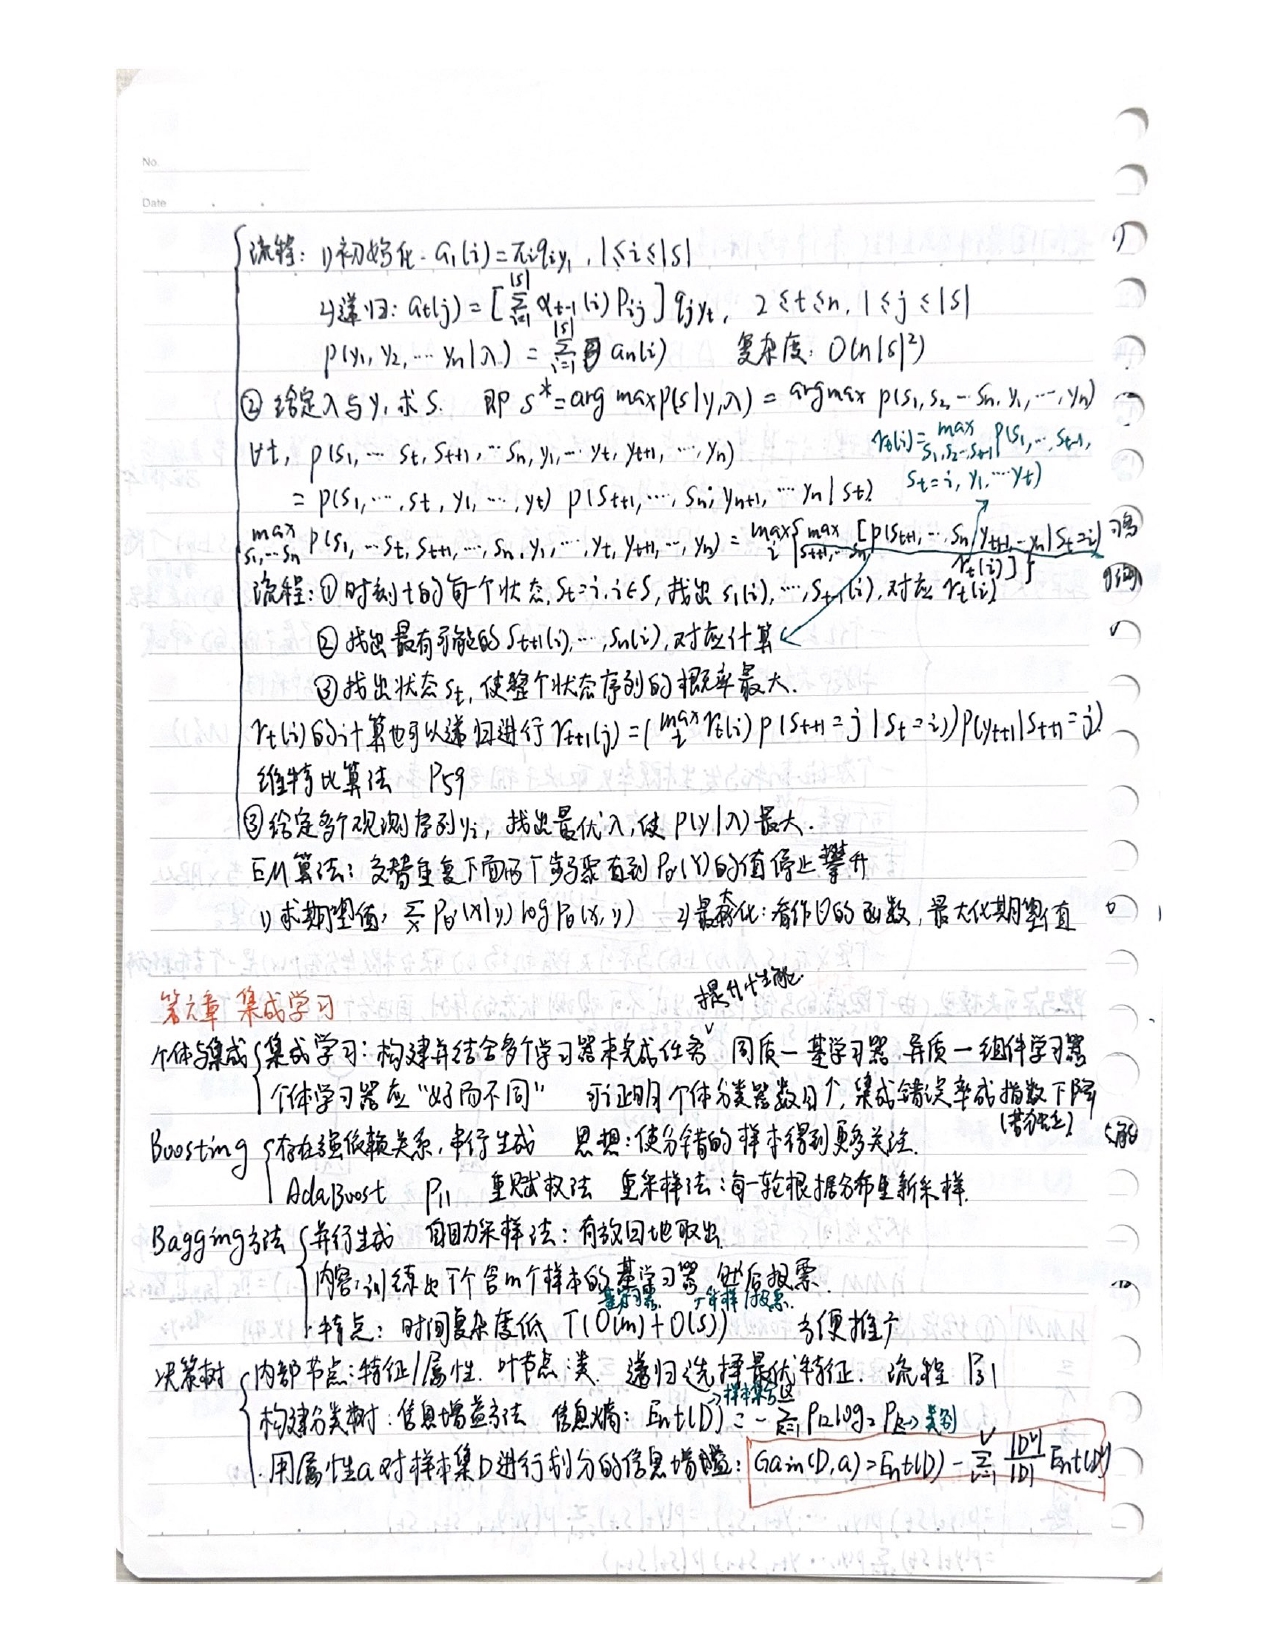 No.
Date
流程：1)初始化：α₁(i)=πᵢqᵢy₁，1≤i≤|S|
2)递归：αt(j)=[∑_{i=1}^{|S|} αt-1(i)Pij]qjyt，2≤t≤n，1≤j≤|S|
P(y₁,y₂,…yn|λ)=∑_{i=1}^{|S|} αn(i) 复杂度：O(n|S|²)
②给定λ与y，求S. 即 S*=arg max P(S|y,λ)=argmax P(S₁,S₂…Sn,y₁,…,yn)
∀t, P(S₁,…St,St+1,…Sn,y₁,…yt,yt+1,…,yn)
rt(i)=max_{S₁,S₂…St-1} P(S₁,…St-1,
St=i,y₁,…yt)
=P(S₁,…,St,y₁,…,yt) P(St+1,…,Sn,yn+1,…yn|St)
max_{S₁,…Sn} P(S₁,…St,St+1,…,Sn,y₁,…,yt,yt+1,…,yn)=max_i{max_{St+1,…Sn}[P(St+1,…,Sn,yt+1…yn|St=i)
rt(i)]}
流程：①时刻t的每个状态，St=i,i∈S，找出S₁(i),…,St-1(i)，对应rt(i)
②找出最有可能的St+1(i),…,Sn(i)，对应计算
③找出状态St，使整个状态序列的概率最大.
rt(i)的计算也可以递归进行rt+1(j)=(max_i rt(i)P(St+1=j|St=i))P(yt+1|St+1=j)
维特比算法 P59
③给定多个观测序列yi，找出最优λ，使P(y|λ)最大.
EM算法：交替重复下面两个步骤直到Pθ(Y)的值停止攀升
1)求期望值：∑_x Pθ'(x|y)logPθ(x,y) 2)最大化：看作θ的函数，最大化期望值
第六章 集成学习
提升性能
个体与集成 集成学习：构建并结合多个学习器来完成任务 同质—基学习器 异质—组件学习器
个体学习器应“好而不同” 可证明个体分类器数目↑，集成错误率成指数下降
(若独立)
Boosting 存在强依赖关系，串行生成 思想：使分错的样本得到更多关注.
AdaBoost P11 重赋权法 重采样法：每一轮根据分布重新采样.
Bagging方法 并行生成 自助采样法：有放回地取出.
内容：训练出T个含m个样本的基学习器 然后投票.
特点：时间复杂度低 T(O(m)+O(S)) 方便推广
决策树 内部节点：特征/属性. 叶节点：类. 递归选择最优特征. 流程 P31
→样本集合
构建分类树：信息增益方法 信息熵：Ent(D)=-∑_{k=1} Pk log₂ Pk→类别
用属性a对样本集D进行划分的信息增益：Gain(D,a)=Ent(D)-∑_{i=1}^{V} |Dᵛ|/|D| Ent(Dᵛ)